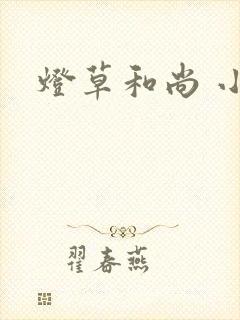 燈草和尚
翟春燕